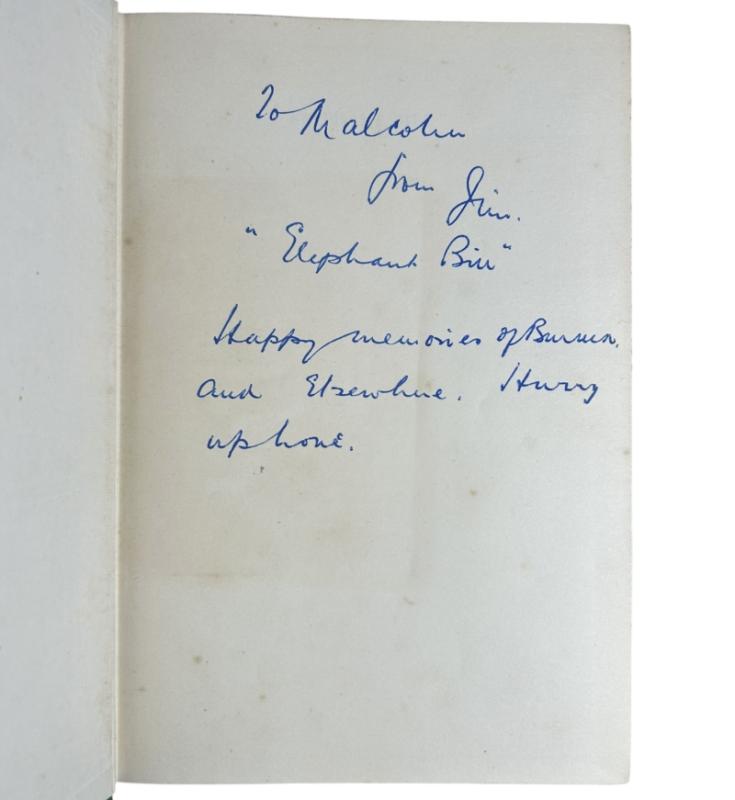 To Malcolm
from Jim.
"Elephant Bill"
Happy memories of Burma.
and Elsewhere. Hurry
up home.